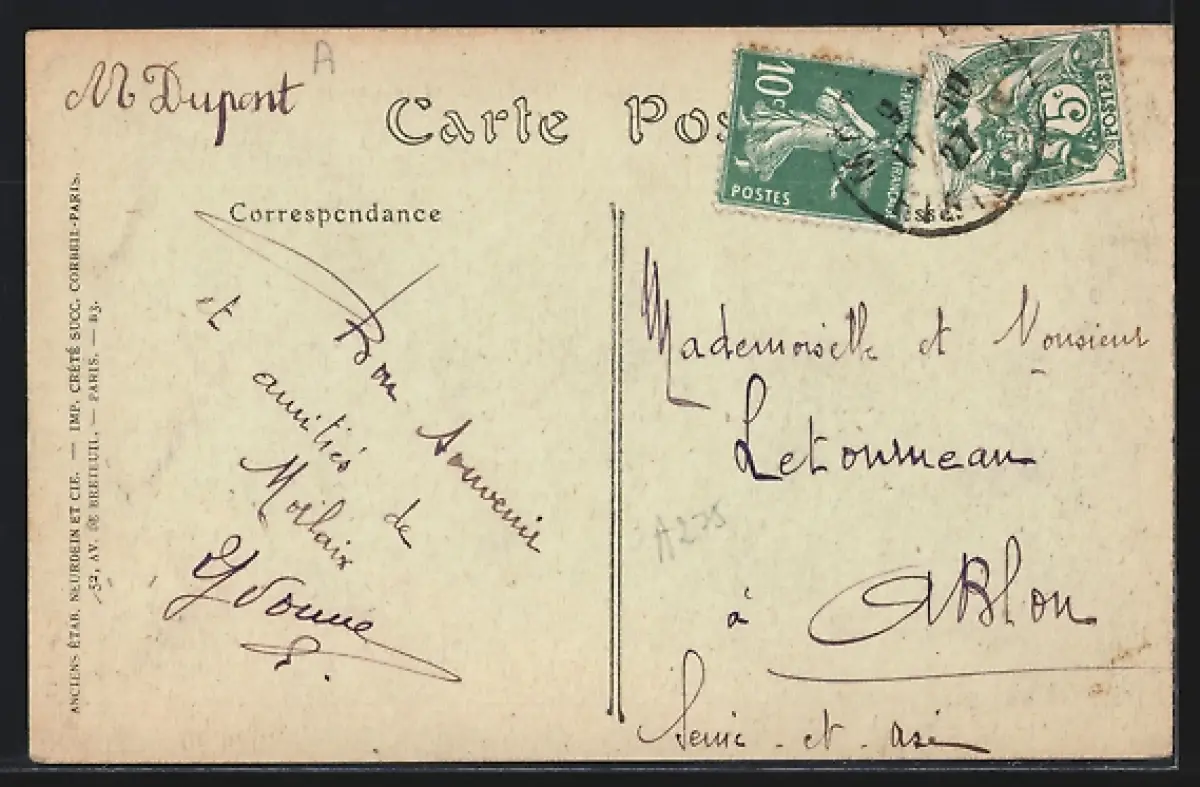 M Dupont
A
Carte Pos
10c
POSTES
FRANÇAI
5c
POSTES
17
27
Correspondance
Bon Souvenir
et
amitiés de
Morlaix
Yvonne
Mademoiselle et Monsieur
Letourneau
A225
à Ablon
Seine - et - Oise
ANCIENS ÉTAB. NEURDEIN ET CIE. — IMP. CRÉTÉ SUCC. CORBEIL-PARIS.
52, AV. DE BRETEUIL, — PARIS. — B3.